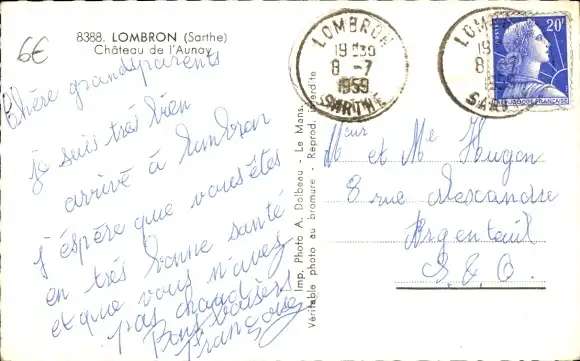 6€
8388. LOMBRON (Sarthe)
Château de l'Aunay
Chère grandsparents
je suis très bien
arrivé à lombron
j'éspère que vous êtes
en très bonne santé
et que vous n'avez
pas chaud
Bons baisers
Françoise
Imp. Photo A. Dolbeau - Le Mans.
Véritable photo au bromure - Reprod. interdite
LOMBRON
19 H30
8 - 7
1959
SARTHE
LOMB
19
8
SAR
20F
RÉPUBLIQUE FRANÇAISE
Meur et Me Hugon
8 rue Alexandre
Argenteuil
S. & O.